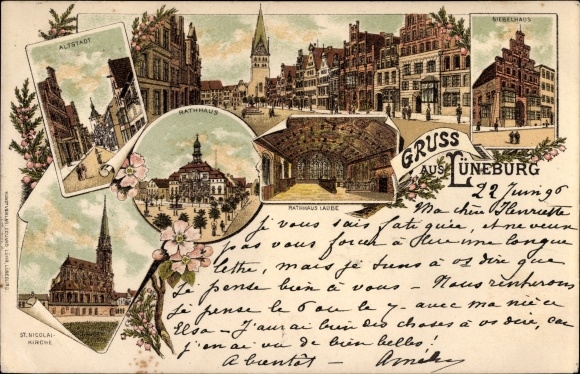 ALTSTADT
GIEBELHAUS
RATHHAUS
RATHHAUS LAUBE
ST. NICOLAI-
KIRCHE
GRUSS
AUS LÜNEBURG
22 Juin 96
Ma chère Henriette
Je vous sais fatiguée, et ne veux
pas vous forcer à lire une longue
lettre, mais je tiens à vs dire que
je pense bien à vous - Nous rentrerons
je pense le 6 ou le 7 - avec ma nièce
Elsa - J'aurai bien des choses à vs dire, car
j'en ai vu de bien belles!
A bientôt - Amélie